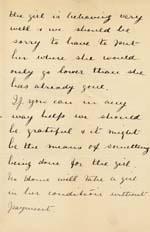 the girl is behaving very
well & we should be
sorry to have to put
her where she would
only go lower than she
has already gone.
If you can in any
way help us we should
be grateful & it might
be the means of something
being done for the girl.
No home will take a girl
in her condition without
payment